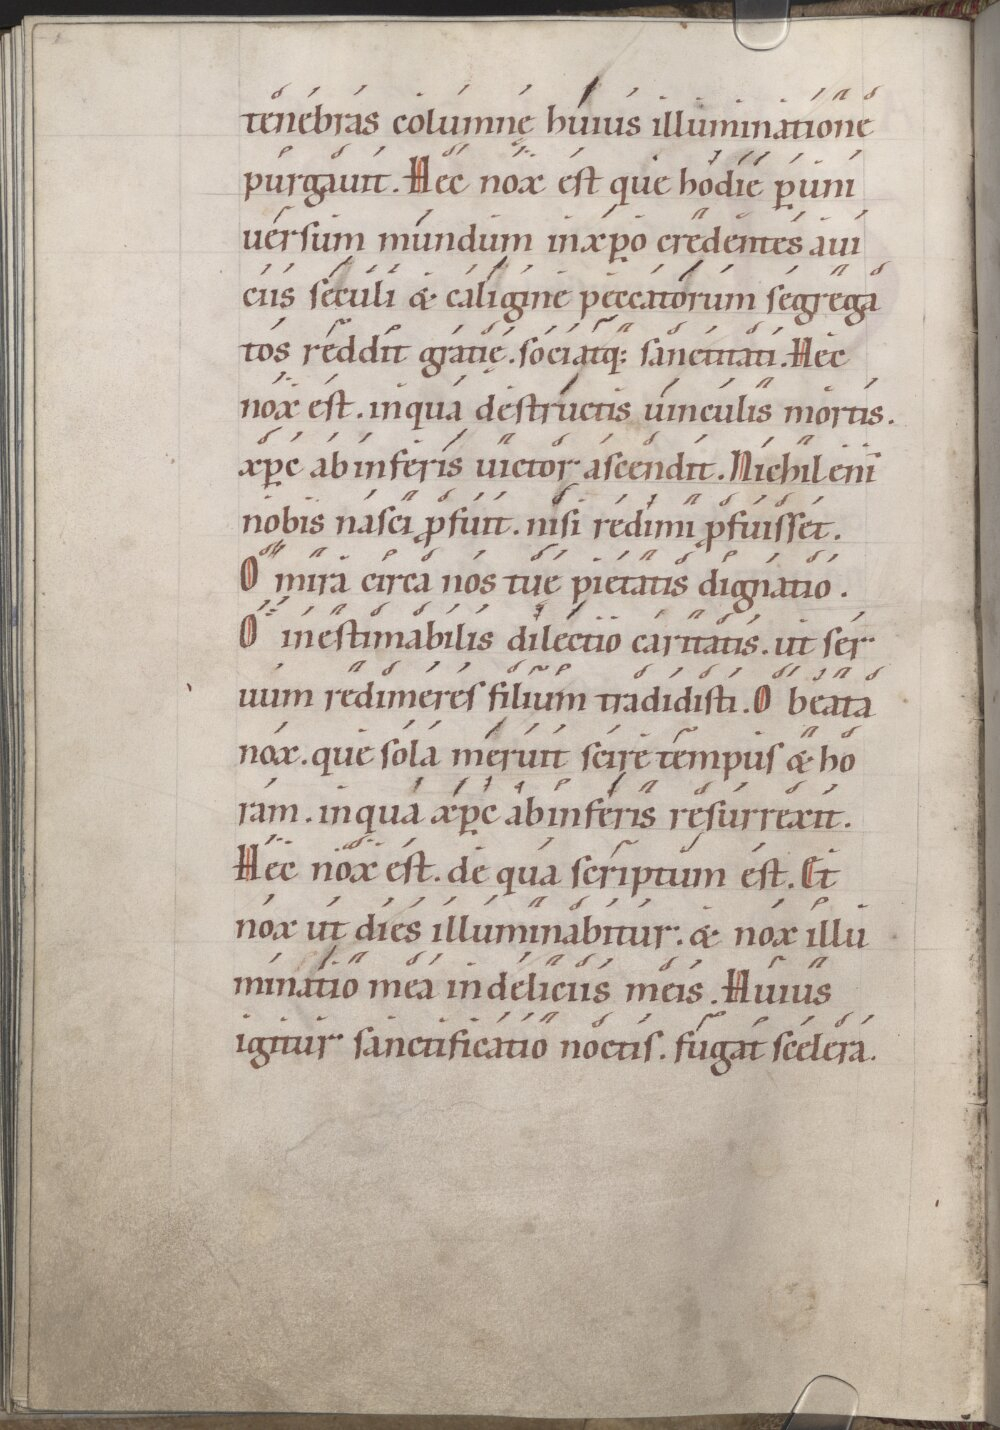 tenebras columnę huius illuminatione
purgauit. Hec nox est que hodie ꝑ uni
uersum mundum in xp̄o credentes a ui
ciis seculi & caligine peccatorum segrega
tos reddit gratię. sociatq: sanctitati. Hec
nox est. in qua destructis uinculis mortis.
xp̄c ab inferis uictor ascendit. Nichil eni̅
nobis nasci ꝓfuit. nisi redimi ꝓfuisset.
O mira circa nos tuę pietatis dignatio.
O inestimabilis dilectio caritatis. ut ser
uum redimeres filium tradidisti. O beata
nox. que sola meruit scire tempus & ho
ram. in qua xp̄c ab inferis resurrexit.
Hec nox est. de qua scriptum est. Et
nox ut dies illuminabitur. & nox illu
minatio mea in deliciis meis. Huius
igitur sanctificatio noctis. fugat scelera.